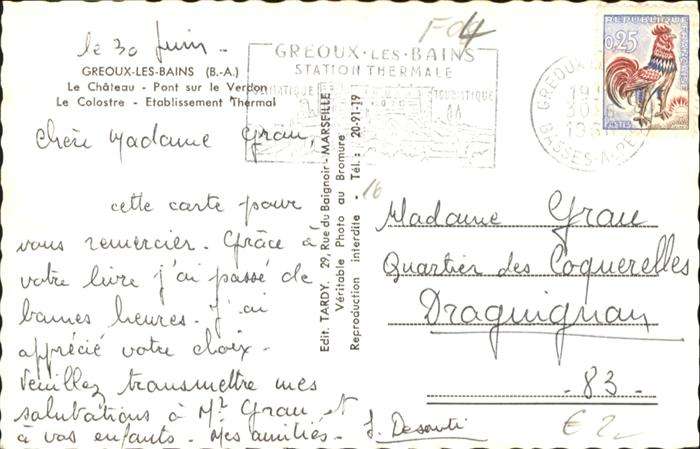 F04
le 30 Juin -
GREOUX-LES-BAINS (B.-A.)
Le Château - Pont sur le Verdon
Le Colostre - Etablissement Thermal
GREOUX-LES-BAINS
STATION THERMALE
TOURISTIQUE
GREOUX
19
30
BASSES-A
REPUBLIQUE FRANÇAISE
0,25
POSTES
Chère Madame Grau,
cette carte pour
vous remercier. Grâce à
votre livre j'ai passé de
bonnes heures. J'ai
apprécié votre choix.
Veuillez transmettre mes
salutations à Mr Grau et
à vos enfants. Mes amitiés.
J. Desanti
Edit. TARDY, 29, Rue du Baignoir - MARSEILLE
Véritable Photo au Bromure
Reproduction interdite - Tél. : 20-91-19
16
Madame Grau
Quartier des Coquerelles
Draguignan
- 83 -
€ 2